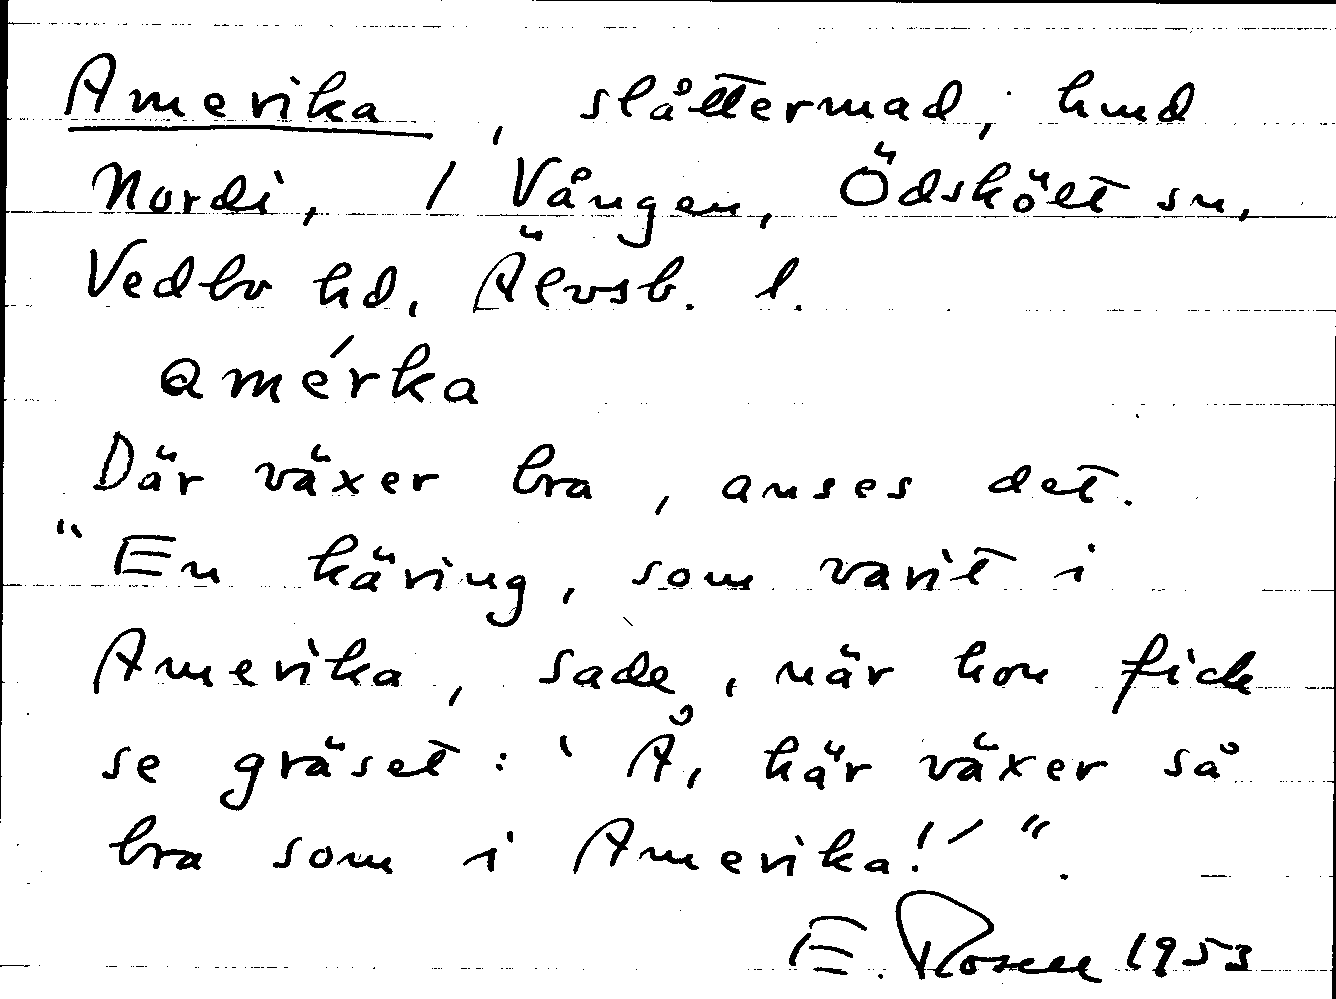 Amerika, slåttermad, hmd
Nordi, 1 Vången, Ödskölt sn,
Vedbo hd, Älvsb. l.
amérka
Där växer bra, anses det.
"En käring, som varit i
Amerika, sade, när hon fick
se gräset: 'Å, här växer så
bra som i Amerika!'".
E. Rosell 1953